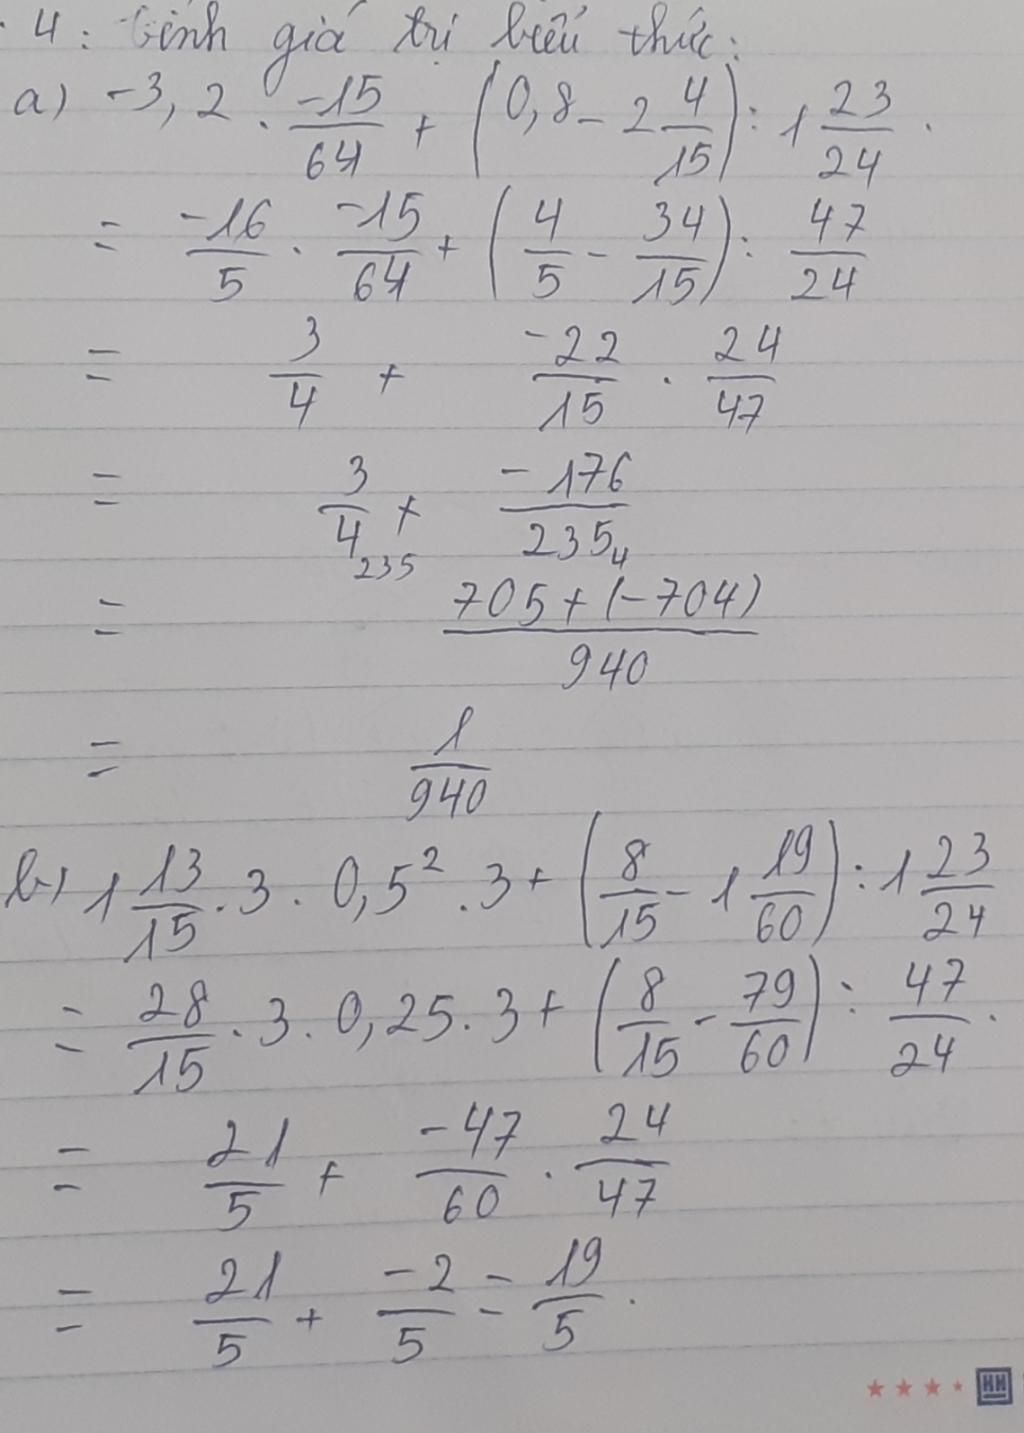 4: Tính giá trị biểu thức:
a) -3,2 . -15/64 + (0,8 - 2 4/15) : 1 23/24 .
= -16/5 . -15/64 + (4/5 - 34/15) : 47/24
= 3/4 + -22/15 . 24/47
= 3/4 235 + -176/235 4
= 705 + (-704)/940
= 1/940
b) 1 13/15 . 3 . 0,5² . 3 + (8/15 - 1 19/60) : 1 23/24
= 28/15 . 3 . 0,25 . 3 + (8/15 - 79/60) : 47/24 .
= 21/5 + -47/60 . 24/47
= 21/5 + -2/5 = 19/5 .